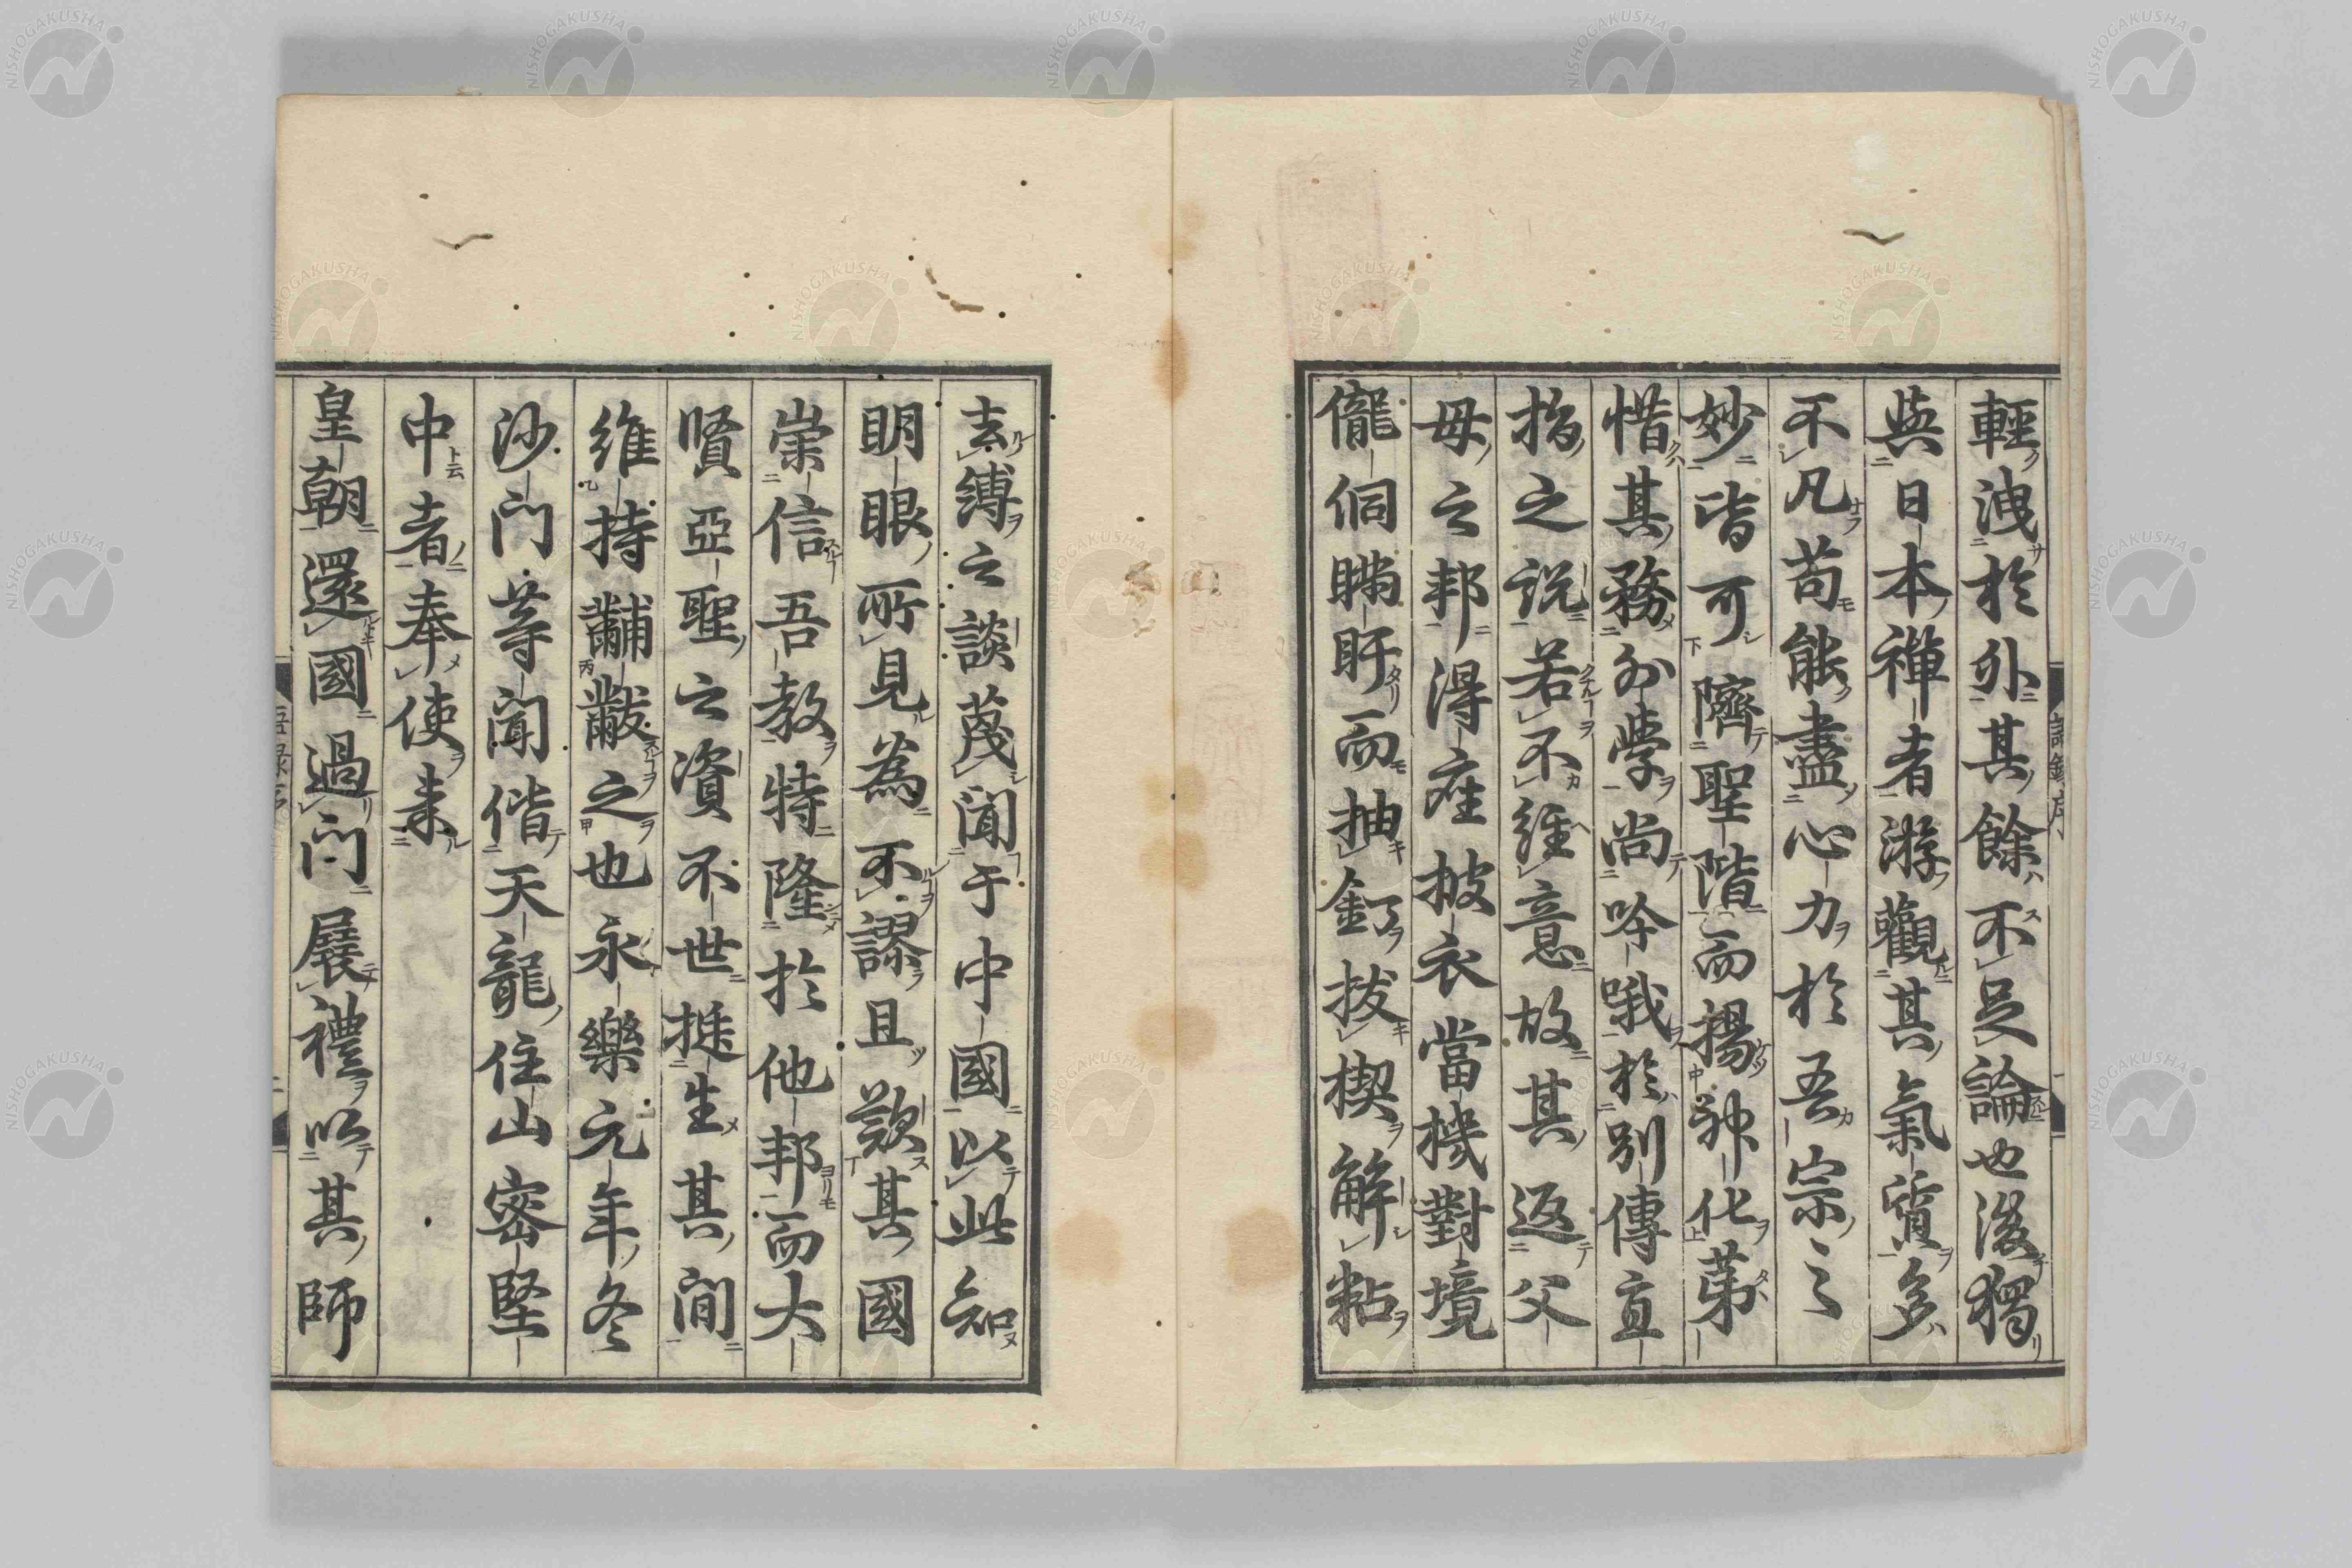 輕洩於外其餘不足論也後獨
與日本禪者游觀其氣質多
不凡苟能盡心力於吾宗之
妙皆可隮聖階而揚神化第
惜其務外學尚吟哦於別傳直
指之說若不經意故其返父
母之邦得座披衣當機對境
儱侗瞞盱而抽釘拔楔解粘
去縛之談蔑聞于中國以此知
明眼所見為不謬且歎其國
崇信吾教特隆於他邦而大
賢亞聖之資不世挺生其間
維持黼黻之也永樂元年冬
沙門等聞偕天龍住山密堅
中者奉使來
皇朝還國過門展禮以其師